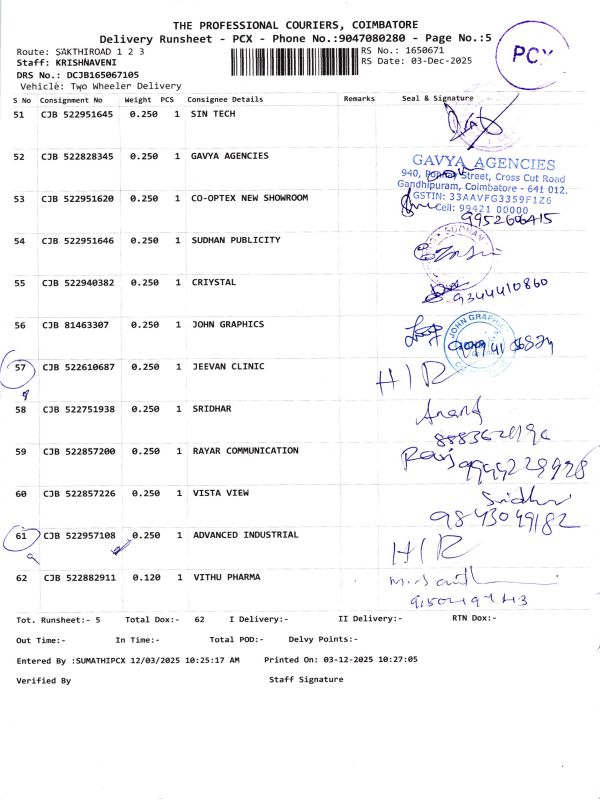 THE PROFESSIONAL COURIERS, COIMBATORE
Delivery Runsheet - PCX - Phone No.:9047080280 - Page No.:5
PCX
Route: SAKTHIROAD 1 2 3
RS No.: 1650671
Staff: KRISHNAVENI
RS Date: 03-Dec-2025
DRS No.: DCJB165067105
Vehicle: Two Wheeler Delivery
S No Consignment No Weight PCS Consignee Details Remarks Seal & Signature
51 CJB 522951645 0.250 1 SIN TECH
52 CJB 522828345 0.250 1 GAVYA AGENCIES
GAVYA AGENCIES
940, Ponnay Street, Cross Cut Road
Gandhipuram, Coimbatore - 641 012.
GSTIN: 33AAVFG3359F1Z6
Cell: 99421 00000
53 CJB 522951620 0.250 1 CO-OPTEX NEW SHOWROOM
9952606415
54 CJB 522951646 0.250 1 SUDHAN PUBLICITY
SUDHAN
55 CJB 522940382 0.250 1 CRIYSTAL
9344410860
56 CJB 81463307 0.250 1 JOHN GRAPHICS
JOHN GRAPHICS
57 CJB 522610687 0.250 1 JEEVAN CLINIC
HIR
58 CJB 522751938 0.250 1 SRIDHAR
Anand
59 CJB 522857200 0.250 1 RAYAR COMMUNICATION
Ravi
60 CJB 522857226 0.250 1 VISTA VIEW
Sridhar
9843049182
61 CJB 522957108 0.250 1 ADVANCED INDUSTRIAL
HIR
62 CJB 522882911 0.120 1 VITHU PHARMA
Tot. Runsheet:- 5 Total Dox:- 62 I Delivery:- II Delivery:- RTN Dox:-
Out Time:- In Time:- Total POD:- Delvy Points:-
Entered By :SUMATHIPCX 12/03/2025 10:25:17 AM Printed On: 03-12-2025 10:27:05
Verified By Staff Signature